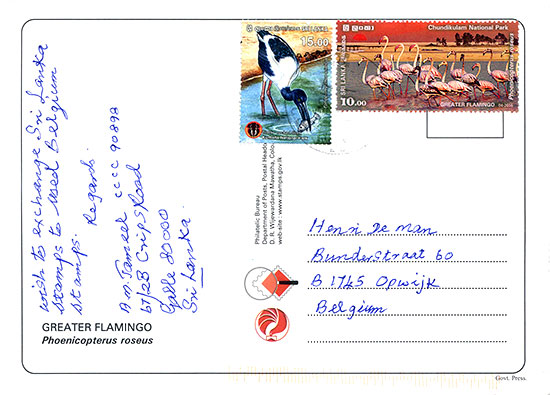 SRI LANKA
15.00
Chundikulam National Park
SRI LANKA
10.00
GREATER FLAMINGO
Phoenicopterus roseus
wish to exchange Sri Lanka
stamps to used Belgium
stamps.
Regards.
A.M. Jameel cccc 90892
67/2B Crips Road
Galle 80000
Sri Lanka.
Philatelic Bureau,
Department of Posts, Postal Headq
D. R. Wijewardana Mawatha, Colo
web-site : www.stamps.gov.lk
Henri De Man
Bunderstraat 60
B 1745 Opwijk
Belgium
GREATER FLAMINGO
Phoenicopterus roseus
Govt. Press.